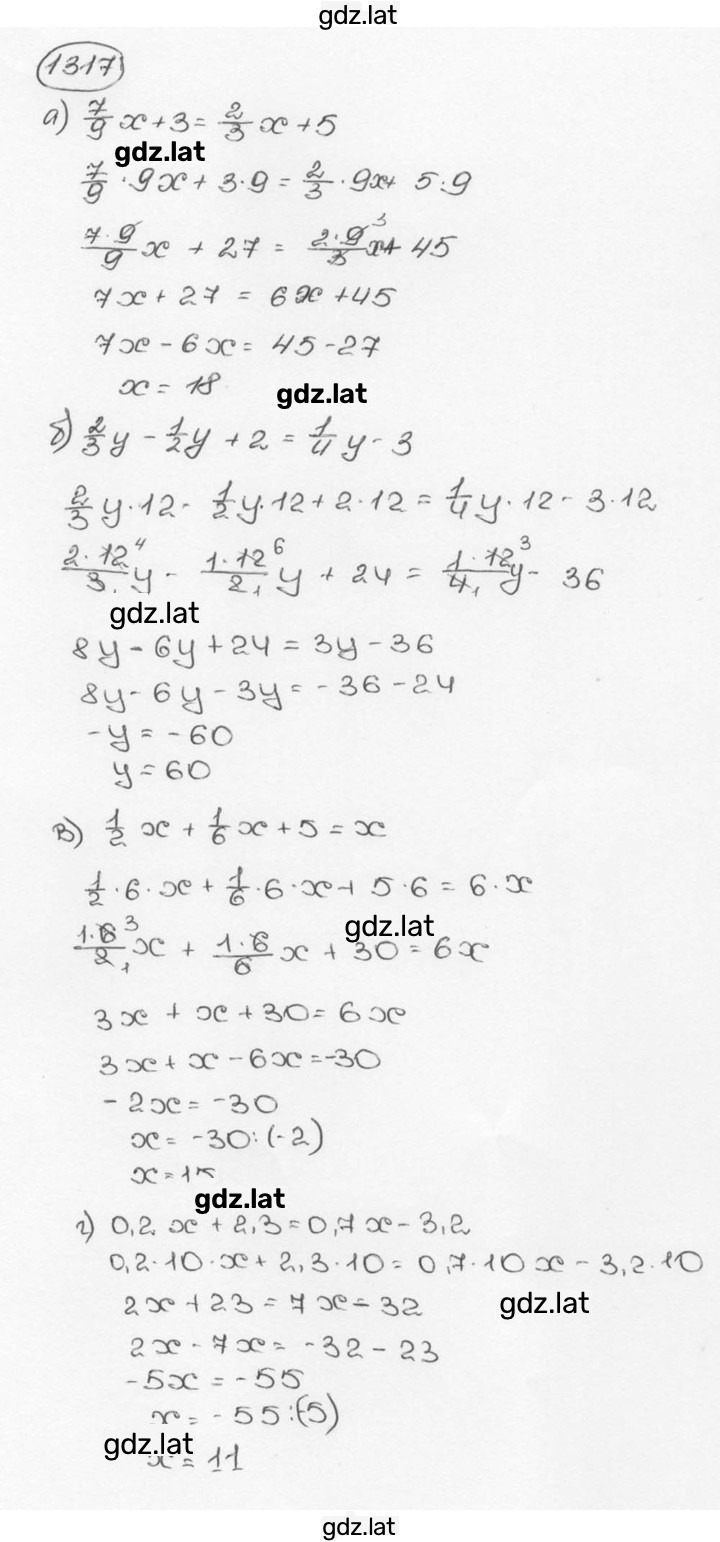 gdz.lat
1317
а) 7/9 x + 3 = 2/3 x + 5
gdz.lat
7/9 · 9x + 3·9 = 2/3 · 9x + 5:9
7·9/9 x + 27 = 2·9³/3 x + 45
7x + 27 = 6x + 45
7x - 6x = 45 - 27
x = 18
gdz.lat
б) 2/3 y - 1/2 y + 2 = 1/4 y - 3
2/3 y·12 - 1/2 y·12 + 2·12 = 1/4 y·12 - 3·12
2·12⁴/3₁ y - 1·12⁶/2₁ y + 24 = 1·12³/4₁ y - 36
gdz.lat
8y - 6y + 24 = 3y - 36
8y - 6y - 3y = -36 - 24
-y = -60
y = 60
в) 1/2 x + 1/6 x + 5 = x
1/2 · 6 · x + 1/6 · 6 · x + 5·6 = 6·x
gdz.lat
1·6³/2₁ x + 1·6/6 x + 30 = 6x
3x + x + 30 = 6x
3x + x - 6x = -30
-2x = -30
x = -30:(-2)
x = 15
gdz.lat
г) 0,2 x + 2,3 = 0,7x - 3,2
0,2·10·x + 2,3·10 = 0,7·10x - 3,2·10
2x + 23 = 7x - 32
gdz.lat
2x - 7x = -32 - 23
-5x = -55
x = -55:(-5)
gdz.lat
x = 11
gdz.lat